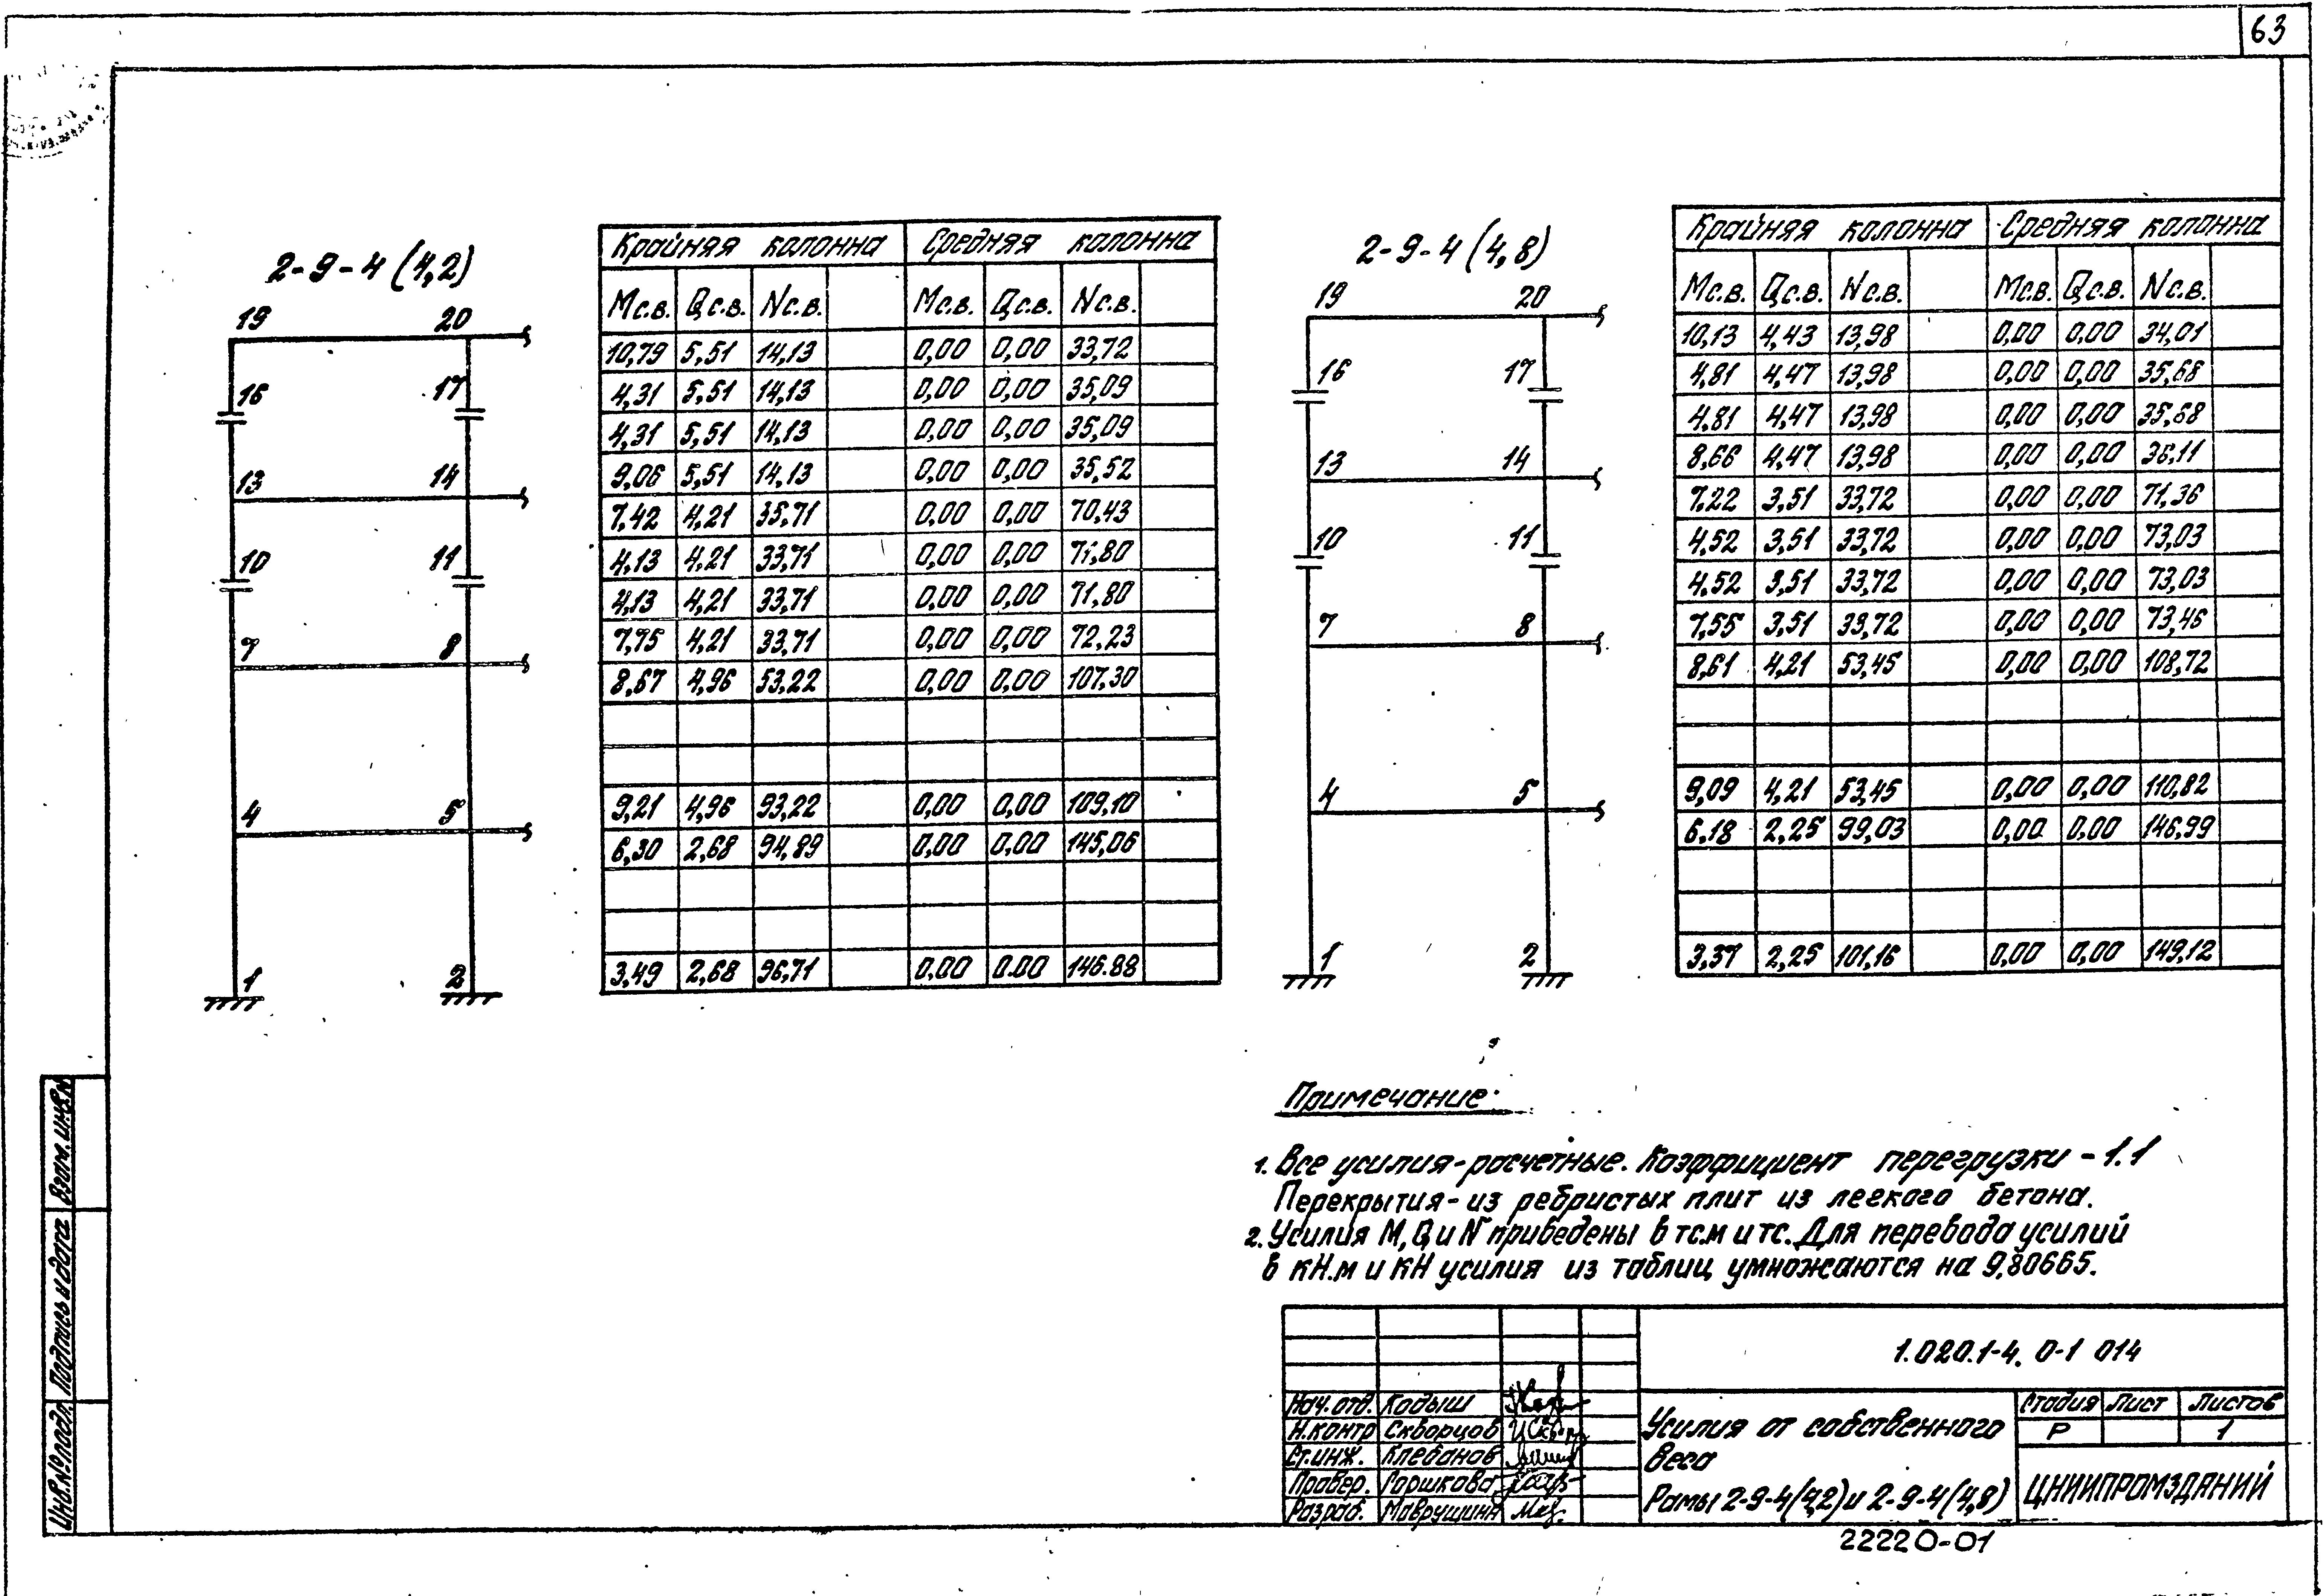 63
2-9-4 (4,2)
19 20
16 17
13 14
10 11
7 8
4 5
1 2
Крайняя колонна Средняя колонна
Мс.в. Qс.в. Nс.в. Мс.в. Qс.в. Nс.в.
10,79 5,51 14,13 0,00 0,00 33,72
4,31 5,51 14,13 0,00 0,00 35,09
4,31 5,51 14,13 0,00 0,00 35,09
9,06 5,51 14,13 0,00 0,00 35,52
7,42 4,21 33,71 0,00 0,00 70,43
4,13 4,21 33,71 0,00 0,00 71,80
4,13 4,21 33,71 0,00 0,00 71,80
7,75 4,21 33,71 0,00 0,00 72,23
8,67 4,96 53,22 0,00 0,00 107,30
9,21 4,96 93,22 0,00 0,00 109,10
6,30 2,68 94,89 0,00 0,00 145,06
3,49 2,68 96,71 0,00 0.00 146.88
2-9-4 (4,8)
19 20
16 17
13 14
10 11
7 8
4 5
1 2
Крайняя колонна Средняя колонна
Мс.в. Qс.в. Nс.в. Мс.в. Qс.в. Nс.в.
10,13 4,43 13,98 0,00 0,00 34,01
4,81 4,47 13,98 0,00 0,00 35,68
4,81 4,47 13,98 0,00 0,00 35,68
8,66 4,47 13,98 0,00 0,00 36,11
7,22 3,51 33,72 0,00 0,00 71,36
4,52 3,51 33,72 0,00 0,00 73,03
4,52 3,51 33,72 0,00 0,00 73,03
7,55 3,51 33,72 0,00 0,00 73,46
8,61 4,21 53,45 0,00 0,00 108,72
9,09 4,21 53,45 0,00 0,00 110,82
6,18 2,25 99,03 0,00 0,00 146,99
3,37 2,25 101,16 0,00 0,00 149,12
Примечание:
1. Все усилия-расчетные. Коэффициент перегрузки - 1.1
Перекрытия - из ребристых плит из легкого бетона.
2. Усилия М, Q и N приведены в тс.м и тс. Для перевода усилий
в кН.м и кН усилия из таблиц умножаются на 9,80665.
1.020.1-4. 0-1 014
Нач.отд. Кодыш
Н.контр Скворцов
Ст.инж. Клебанов
Провер. Горшкова
Разраб. Маврушина
Усилия от собственного
веса
Рамы 2-9-4(4,2) и 2-9-4(4,8)
Стадия Лист Листов
Р 1
ЦНИИПРОМЗДАНИЙ
22220-01
Инв.№ подл. Подпись и дата Взам. инв.N